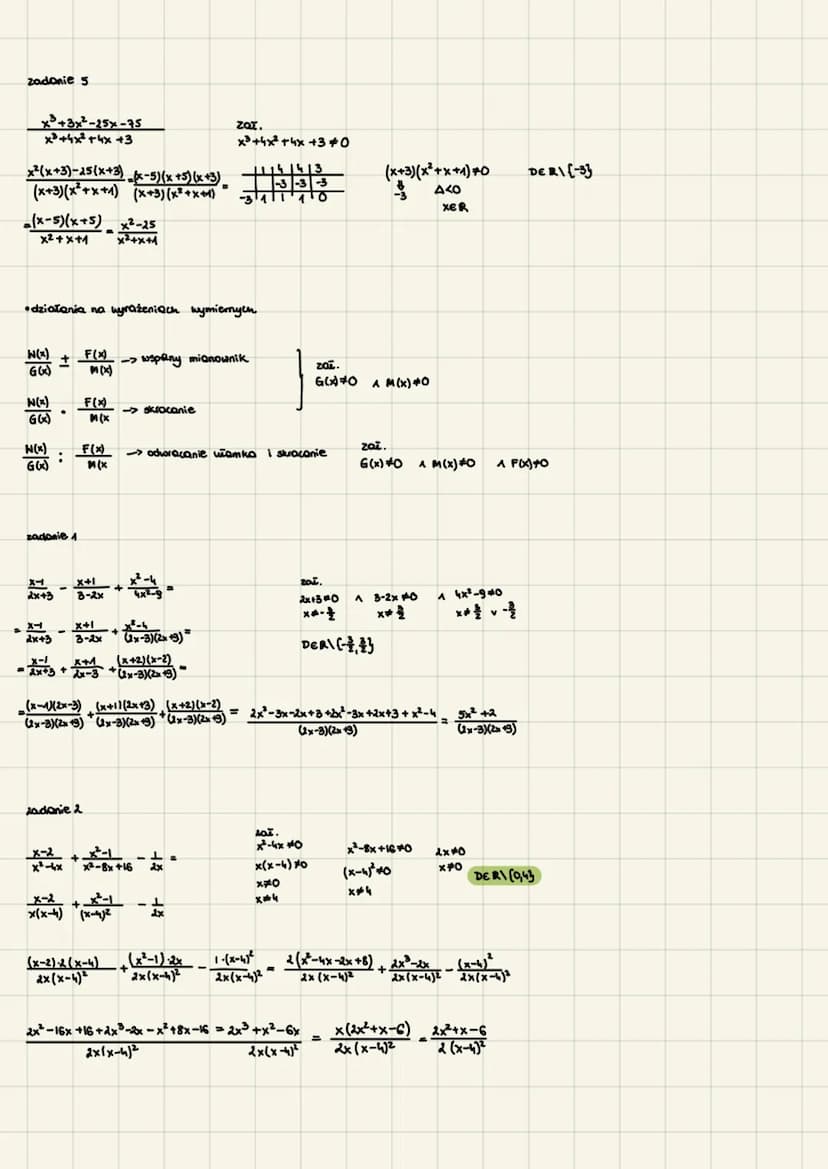 zadanie 5
x³+3x²-25x-75 / x³+4x²+4x+3
zał.
x³+4x²+4x+3≠0
x²(x+3)-25(x+3) / (x+3)(x²+x+1) = (x-5)(x+5)(x+3) / (x+3)(x²+x+1) =
1 | 4 | 4 | 3
-3 | -3 | -3
-3 | 1 | 1 | 1 | 0
(x+3)(x²+x+1)≠0
-3
Δ<0
x∈R
D∈R\{-3}
= (x-5)(x+5) / x²+x+1 = x²-25 / x²+x+1
•działania na wyrażeniach wymiernych
W(x)/G(x) ± F(x)/M(x) -> wspólny mianownik
W(x)/G(x) · F(x)/M(x -> skracanie
zał.
G(x)≠0 ∧ M(x)≠0
W(x)/G(x) : F(x)/M(x -> odwracanie ułamka i skracanie
zał.
G(x)≠0 ∧ M(x)≠0 ∧ F(x)≠0
zadanie 1
x-1/2x+3 - x+1/3-2x + x²-4/4x²-9 =
zał.
2x+3≠0 ∧ 3-2x≠0 ∧ 4x²-9≠0
x≠-3/2 x≠3/2 x≠3/2 ∨ -3/2
= x-1/2x+3 - x+1/3-2x + x²-4/(2x-3)(2x+3) =
D∈R\{-3/2,3/2}
= x-1/2x+3 + x+1/2x-3 + (x+2)(x-2)/(2x-3)(2x+3) =
= (x-1)(2x-3)/(2x-3)(2x+3) + (x+1)(2x+3)/(2x-3)(2x+3) + (x+2)(x-2)/(2x-3)(2x+3) = 2x²-3x-2x+3+2x²-3x+2x+3+x²-4 / (2x-3)(2x+3) = 5x²+2/(2x-3)(2x+3)
zadanie 2
x-2/x²-4x + x²-1/x²-8x+16 - 1/2x =
zał.
x²-4x≠0 x²-8x+16≠0 2x≠0
x(x-4)≠0 (x-4)²≠0 x≠0
x≠0 x≠4
x≠4
D∈R\{0,4}
x-2/x(x-4) + x²-1/(x-4)² - 1/2x
(x-2)·2(x-4)/2x(x-4)² + (x²-1)·2x/2x(x-4)² - 1·(x-4)²/2x(x-4)² = 2(x²-4x-2x+8)/2x(x-4)² + 2x³-2x/2x(x-4)² - (x-4)²/2x(x-4)²
2x²-16x+16+2x³-2x-x²+8x-16 / 2x(x-4)² = 2x³+x²-6x / 2x(x-4)² = x(2x²+x-6) / 2x(x-4)² = 2x²+x-6 / 2(x-4)²